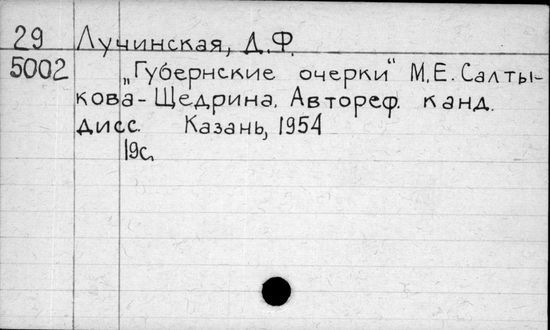 29 Лучинская, Д.Ф.
5002 „Губернские очерки“ М.Е. Салты-
кова-Щедрина. Автореф. канд.
дисс. Казань, 1954
19с.